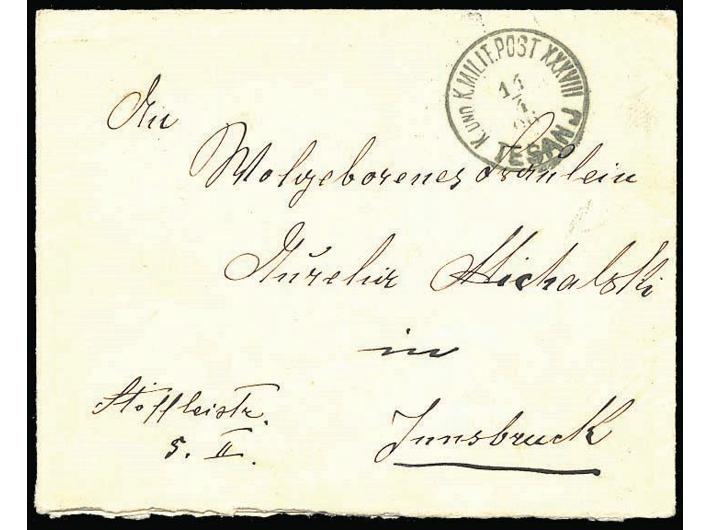 K. UND K. MILIT. POST XXXVIII
14
1
TEŠANJ
An
Wolgeborenes Fräulein
Aurelia Michalski
in
Innsbruck
Stöffleistr.
5. II.